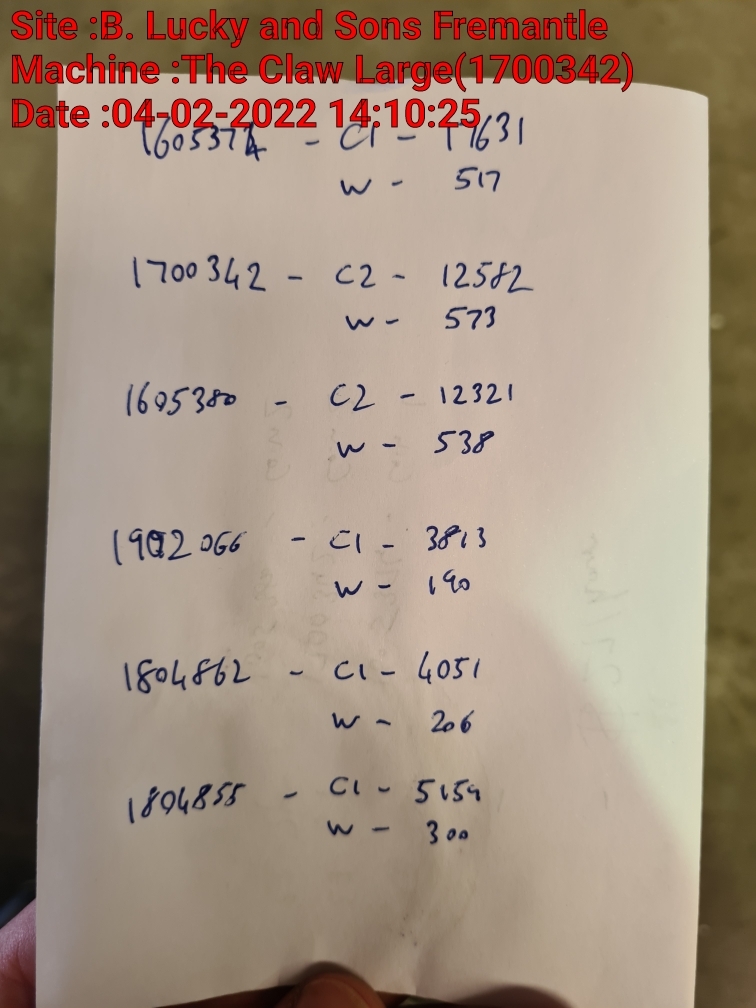 Site :B. Lucky and Sons Fremantle
Machine :The Claw Large(1700342)
Date :04-02-2022 14:10:25
1605374 - C1 - 11631
W - 517
1700342 - C2 - 12582
W - 573
1605380 - C2 - 12321
W - 538
1902066 - C1 - 3813
W - 190
1804862 - C1 - 4051
W - 206
1804855 - C1 - 5159
W - 300